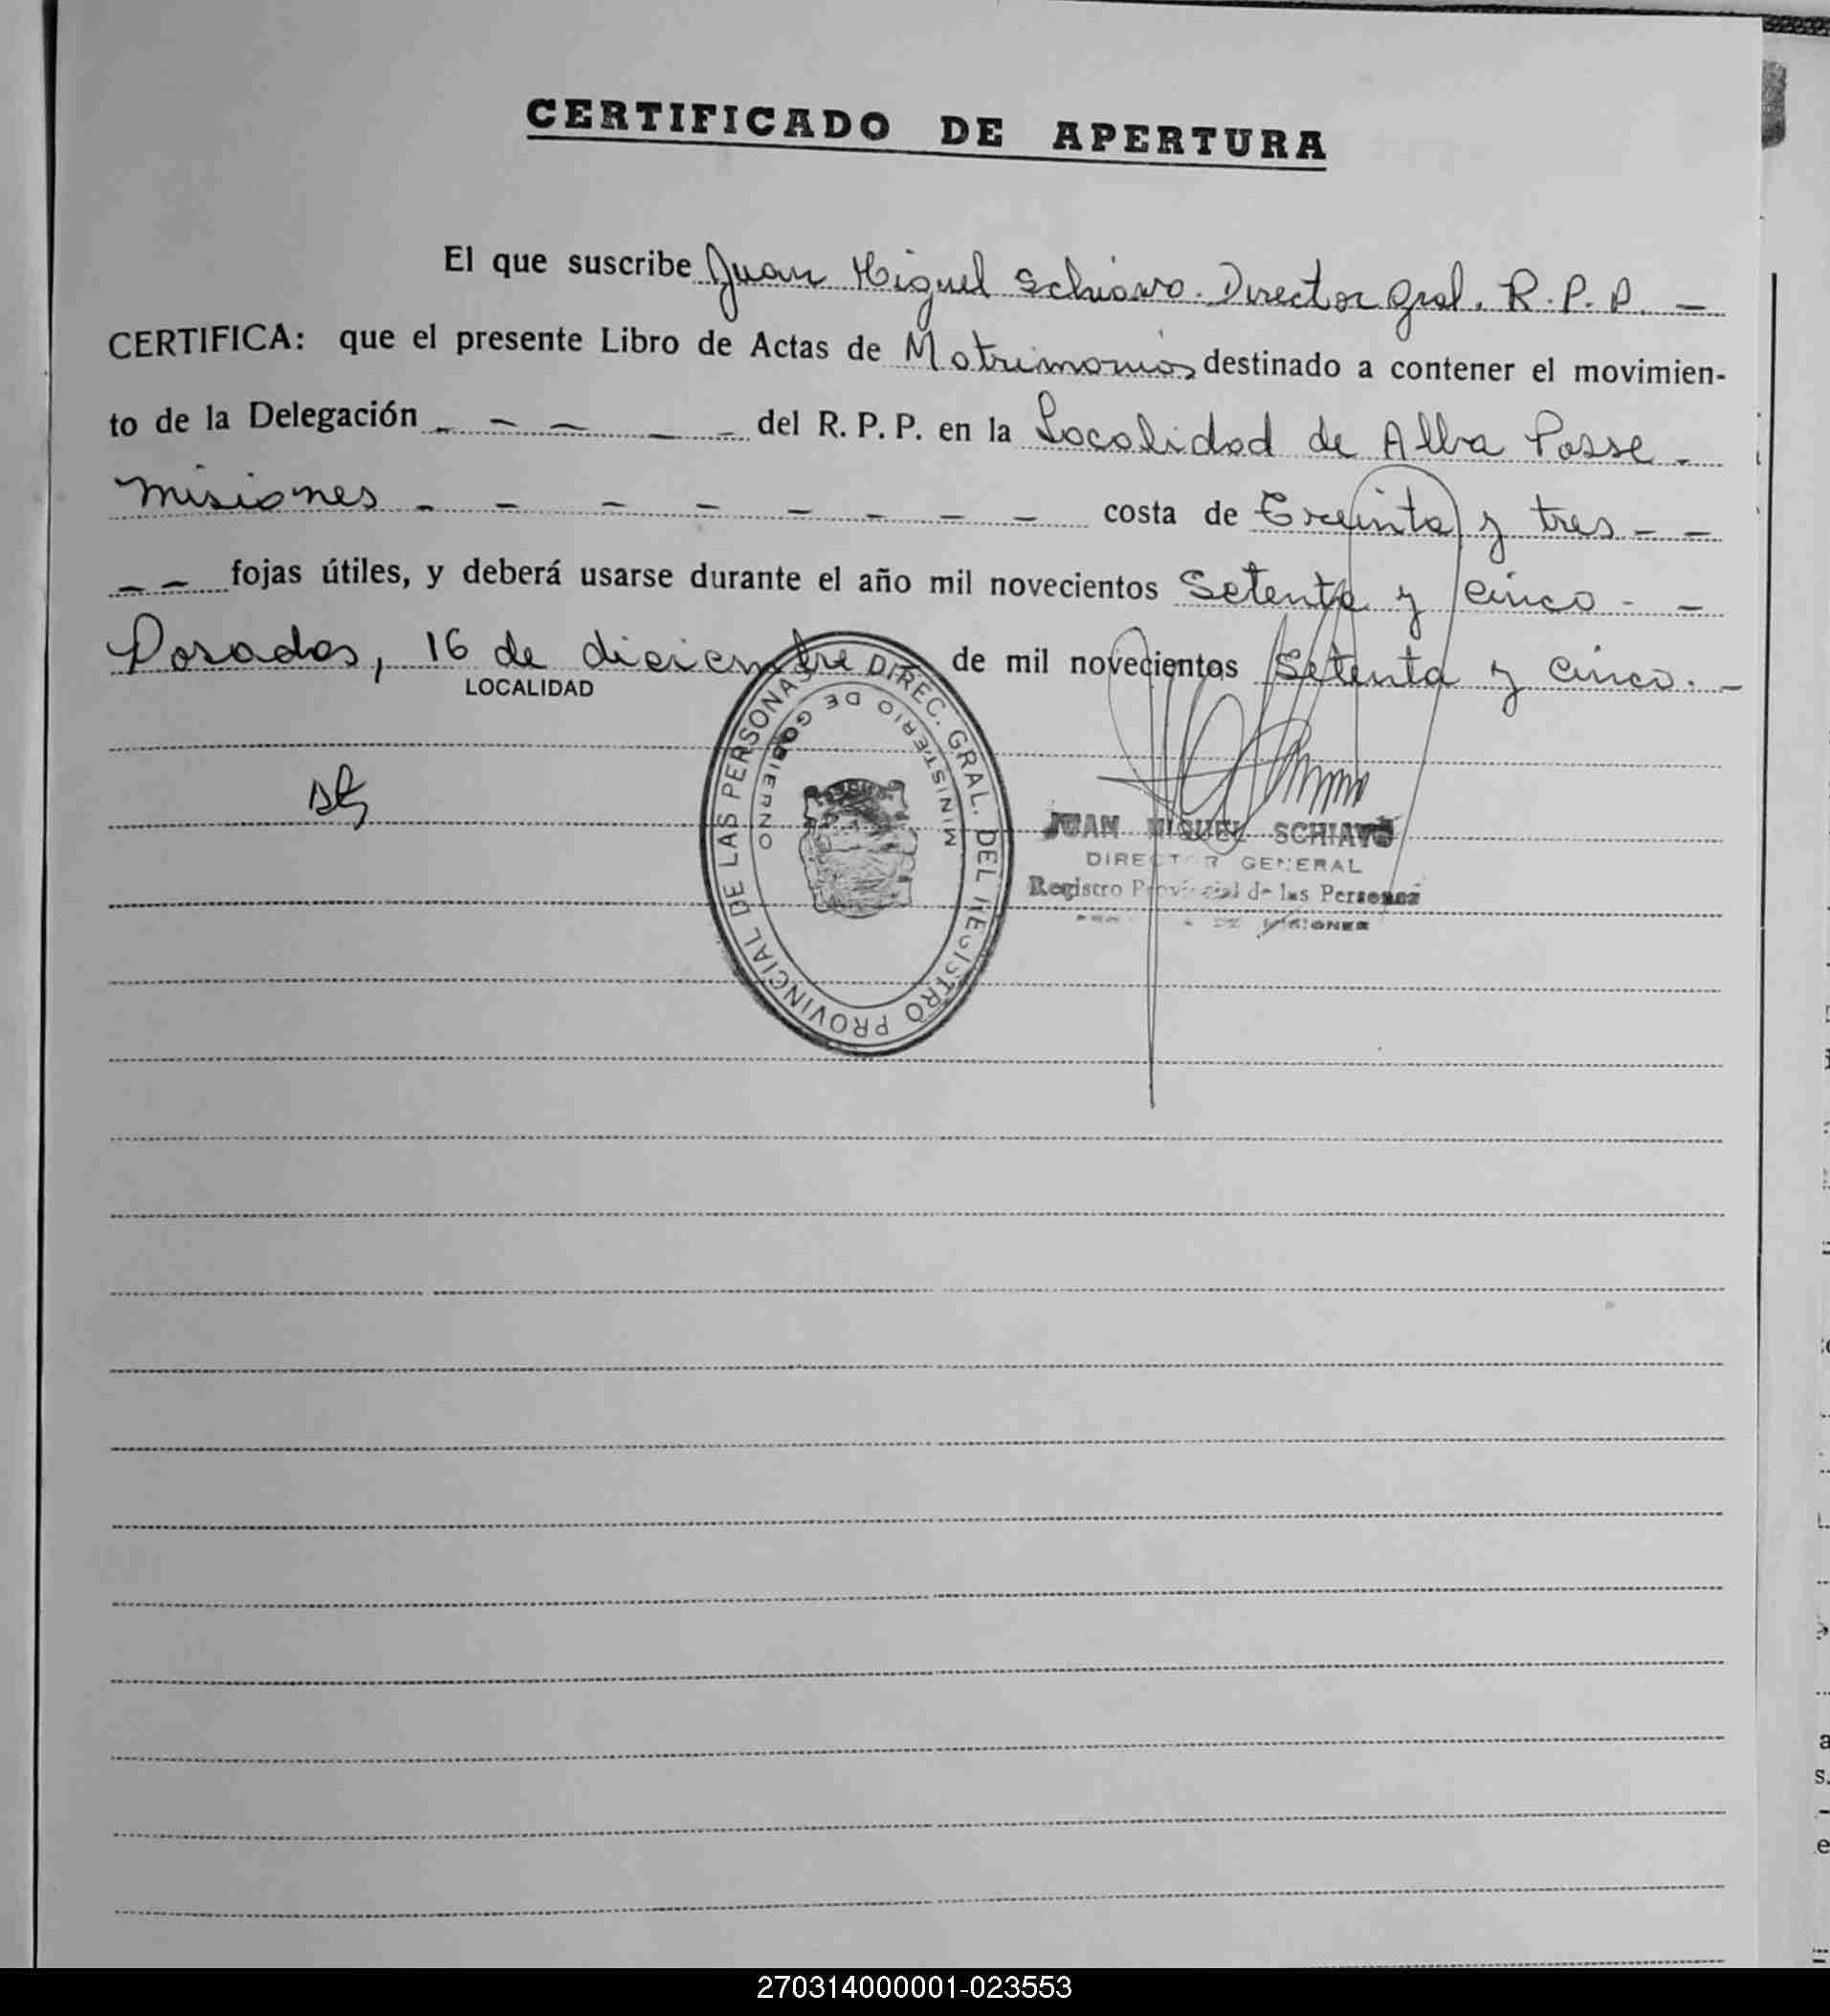 CERTIFICADO DE APERTURA
El que suscribe Juan Miguel Schiavo. Director Gral. R. P. P. -
CERTIFICA: que el presente Libro de Actas de Matrimonios destinado a contener el movimien-
to de la Delegación - - - - - del R. P. P. en la Localidad de Alba Posse -
Misiones - - - - - - - - costa de Treinta y tres - -
- - fojas útiles, y deberá usarse durante el año mil novecientos Setenta y cinco - -
Posadas, 16 de diciembre de mil novecientos Setenta y cinco. -
LOCALIDAD
DIREC. GRAL. DEL REGISTRO PROVINCIAL DE LAS PERSONAS
MINISTERIO DE GOBIERNO
JUAN MIGUEL SCHIAVO
DIRECTOR GENERAL
Registro Provincial de las Personas
DE MISIONES
270314000001-023553